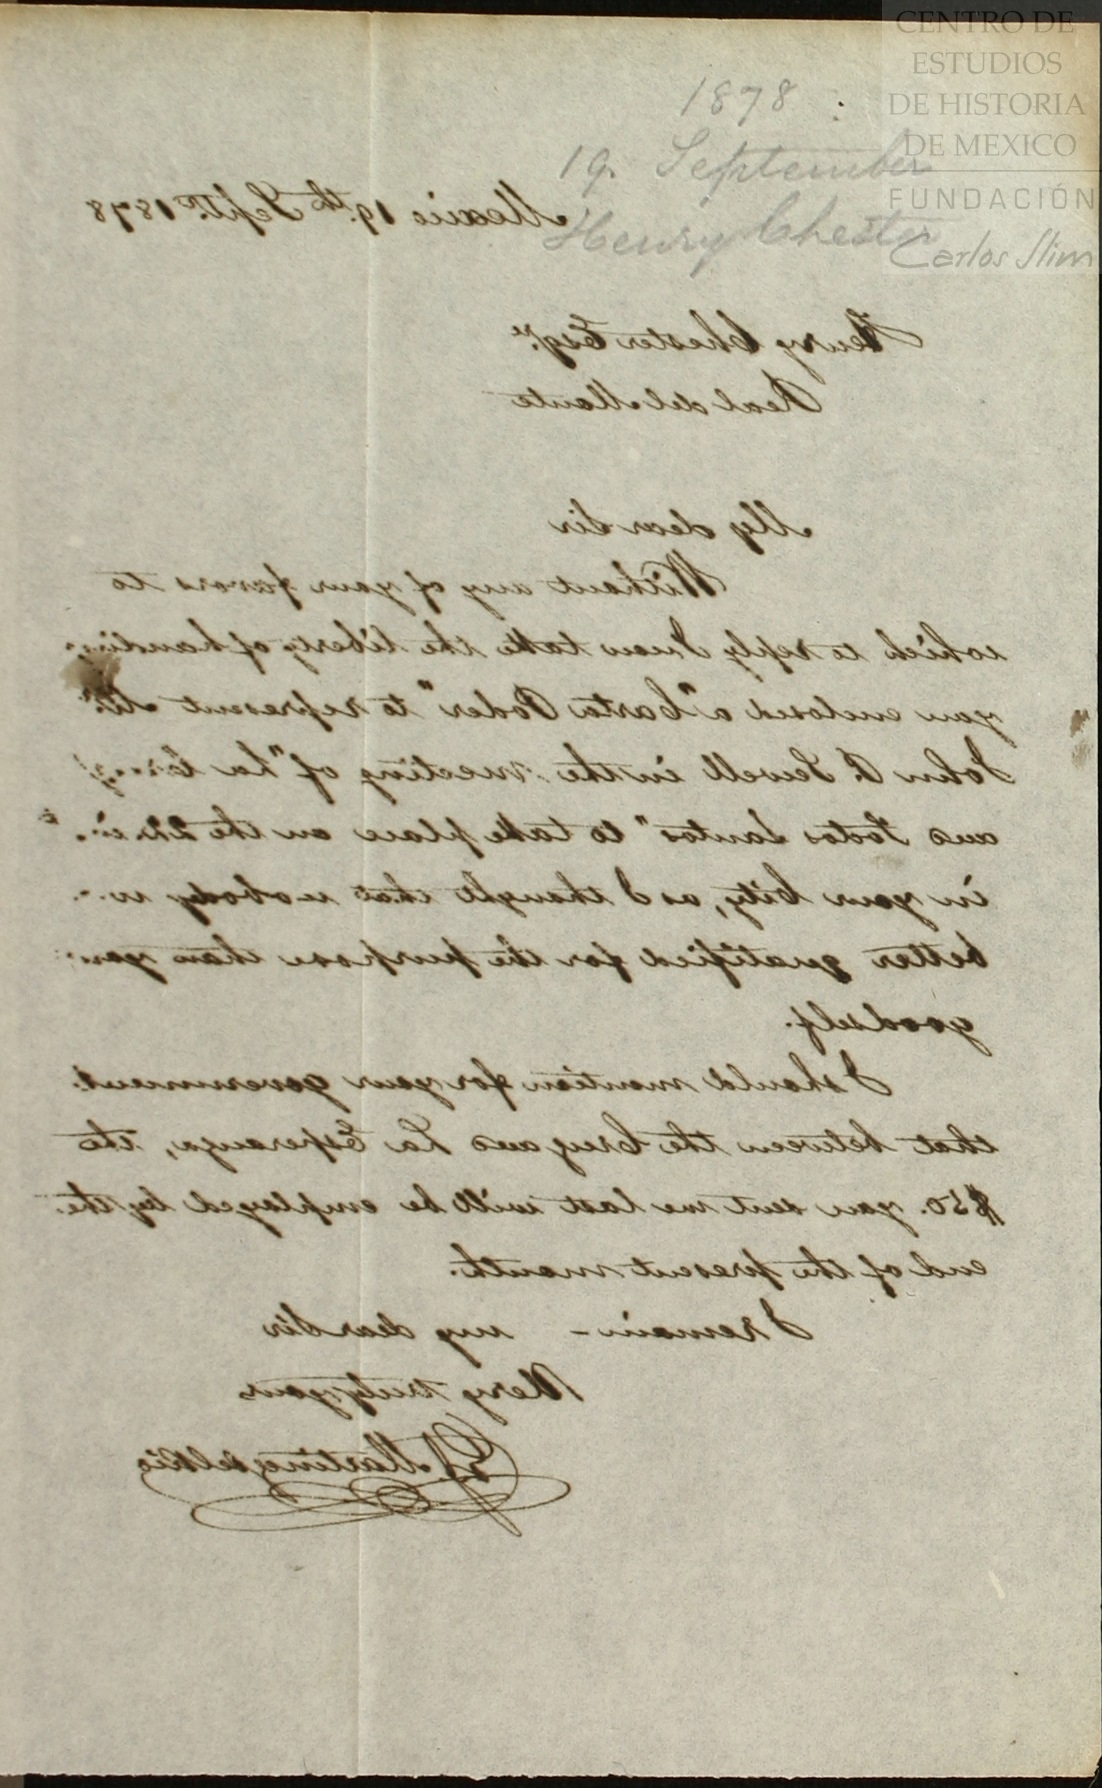 CENTRO DE
ESTUDIOS
DE HISTORIA
DE MEXICO
FUNDACIÓN
Carlos Slim
1878
19. September
Henry Chester
Mexico 19th Septr. 1878
Henry Chester Esqre.
Real del Monte
My dear Sir
Without any of your favors to
which to reply I now take the liberty of
you enclosed a "Carta Poder" to represent Mr.
John B. Sewell in the meeting of "La
and Todos Santos" to take place on the 22
in your City, as I thought that nobody
better qualified for the purpose than
goodself.
I should mention for your government
that between the Cruz and La Esperanza, the
$50. you sent me last will be employed by the
end of the present month.
I remain - my dear Sir
Very truly yours
Martinez del Rio